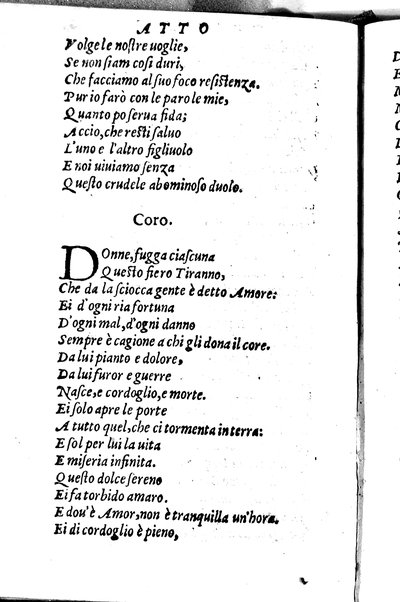 ATTO
Volge le nostre uoglie,
Se non siam così duri,
Che facciamo al suo foco resistenza.
Pur io farò con le parole mie,
Quanto poserua fida;
Accio, che resti saluo
L'uno e l'altro figliuolo
E noi uiuiamo senza
Questo crudele abominoso duolo.
Coro.
Donne, fugga ciascuna
Questo fiero Tiranno,
Che da la sciocca gente è detto Amore:
Ei d'ogni ria fortuna
D'ogni mal, d'ogni danno
Sempre è cagione a chi gli dona il core.
Da lui pianto e dolore,
Da lui furor e guerre
Nasce, e cordoglio, e morte.
Ei solo apre le porte
A tutto quel, che ci tormenta in terra:
E sol per lui la uita
E miseria infinita.
Questo dolce sereno
Ei fa torbido amaro.
E dou'è Amor, non è tranquilla un'hora.
Ei di cordoglio è pieno,